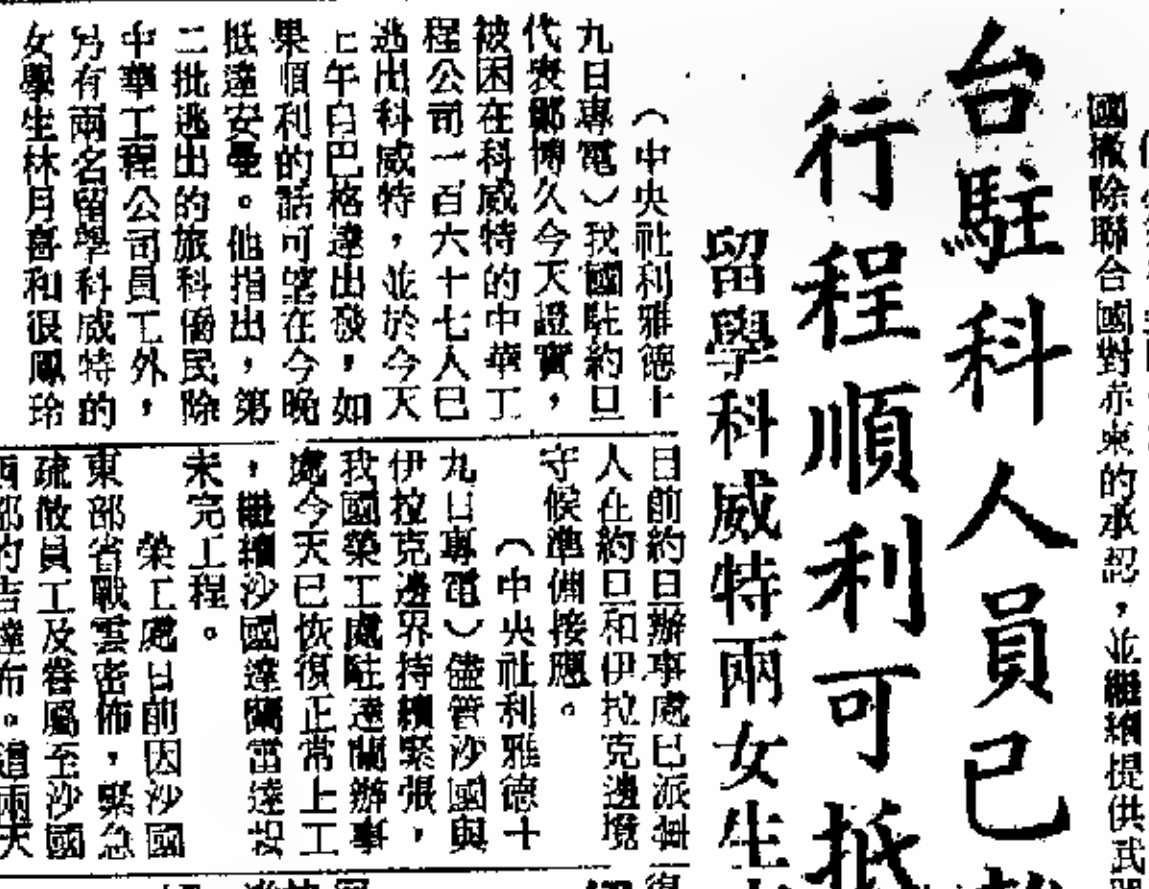 國撤除聯合國對赤柬的承認，並繼續提供武
台駐科人員已
行程順利可抵
留學科威特兩女生
（中央社利雅德十
九日專電）我國駐約旦
代表鄭博久今天證實，
被困在科威特的中華工
程公司一百六十七人已
逃出科威特，並於今天
上午自巴格達出發，如
果順利的話可望在今晚
抵達安曼。他指出，第
二批逃出的旅科僑民除
中華工程公司員工外，
另有兩名留學科威特的
女學生林月喜和很鳳玲
目前約旦辦事處已派
人在約旦和伊拉克邊境
守候準備接應。
（中央社利雅德十
九日專電）儘管沙國與
伊拉克邊界持續緊張，
我國榮工處駐達蘭辦事
處今天已恢復正常上工
，繼續沙國達蘭當達
未完工程。
榮工處日前因沙國
東部省戰雲密佈，緊急
疏散員工及眷屬至沙國
西部的吉達布。這兩天